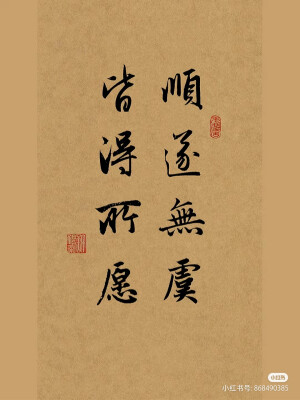 順遂無虞
皆得所愿
小红书
小红书号: 868490385